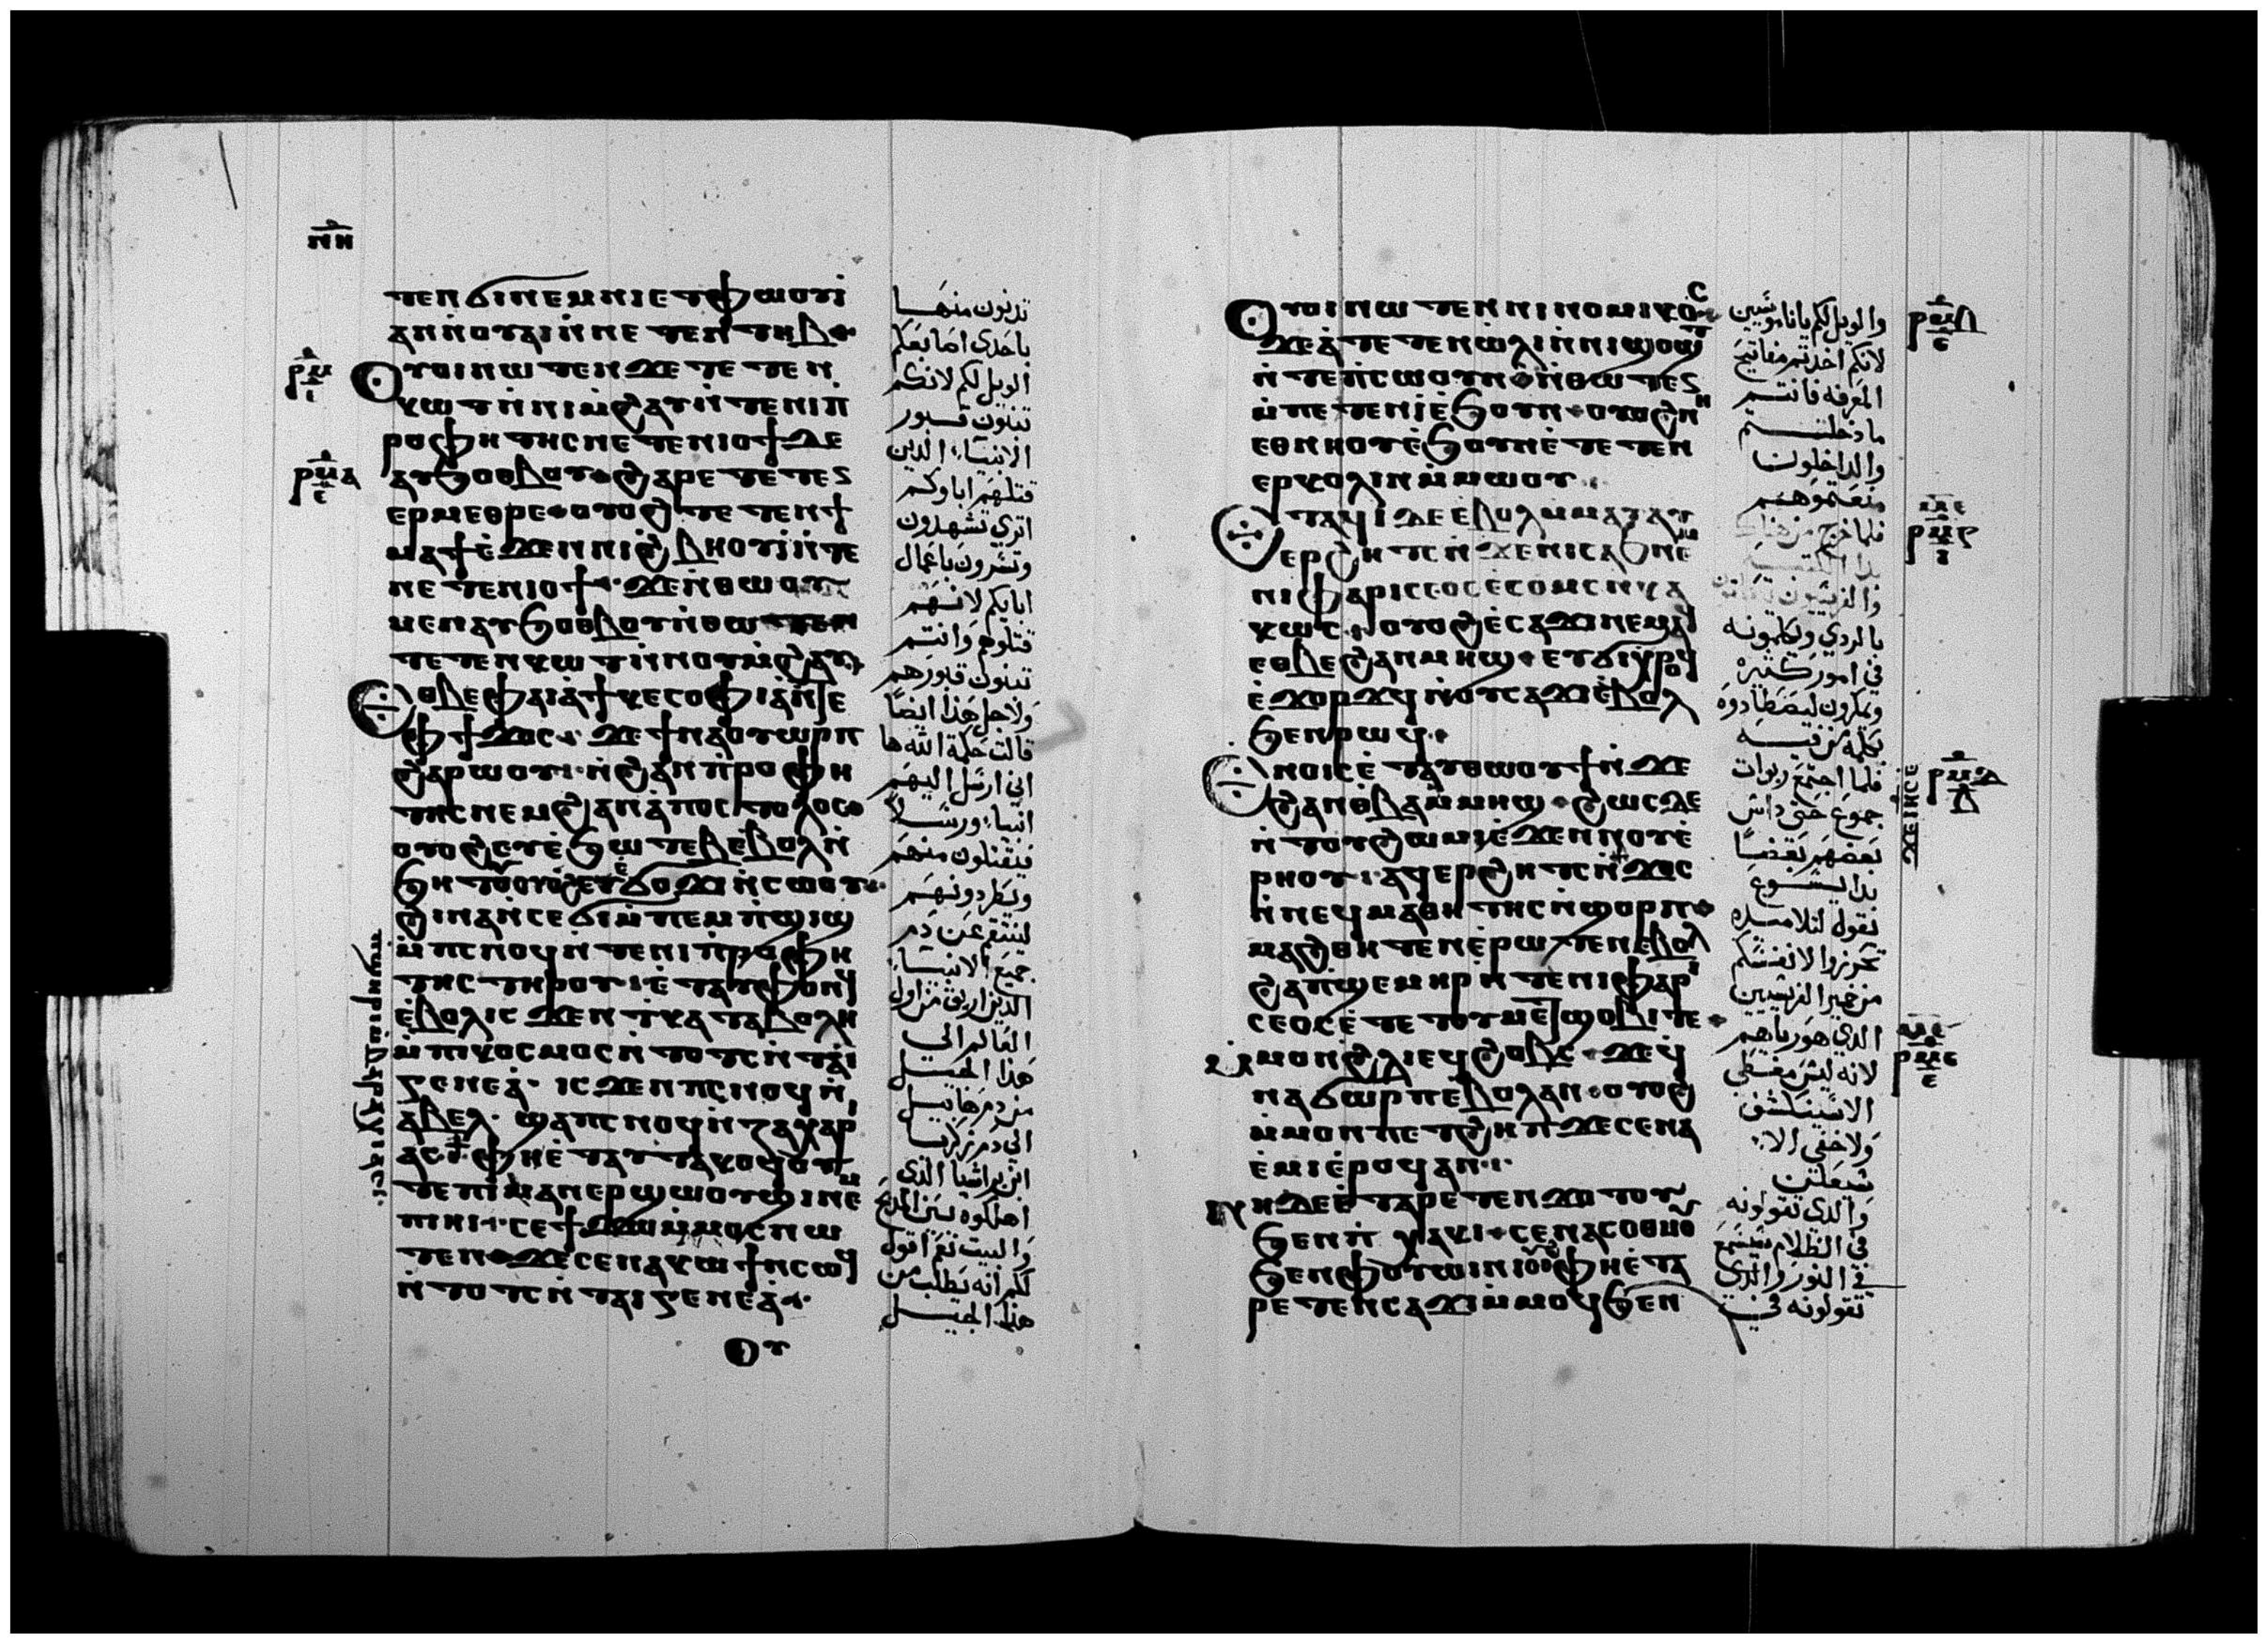 ⲛⲏ
ⲧⲉⲛϭⲓⲛⲉⲙⲛⲓⲉⲧⲫⲱⲟⲩⲓ
ⲁⲛⲛⲟⲩⲁⲓⲛ̀ⲛⲉⲧⲉⲛⲧⲏⲃ
ⲟⲩⲟⲓⲛⲱⲧⲉⲛϫⲉⲧⲉⲧⲉⲛ
ⲕⲱⲧⲛ̀ⲛⲓⲙ̀ϩⲁⲩⲛ̀ⲧⲉⲛⲓⲡ̀
ⲣⲟⲫⲏⲧⲏⲥⲛⲉⲧⲉⲛⲓⲟϯⲇⲉ
ⲁⲩϧⲟⲑⲃⲟⲩ ϩⲁⲣⲉⲧⲉⲧⲉⲛ
ⲉⲣⲙⲉⲑⲣⲉ ⲟⲩⲟϩⲧⲉⲧⲉⲛϯ
ⲙⲁϯⲉ̀ϫⲉⲛⲛⲓϩ̀ⲃⲏⲟⲩⲓ̀ⲛ̀ⲧⲉ
ⲛⲉⲧⲉⲛⲓⲟϯ ϫⲉⲛ̀ⲑⲱⲟⲩ
ⲙⲉⲛⲁⲩϧⲟⲑⲃⲟⲩⲛ̀ⲑⲱⲧⲉⲛ
ⲧⲉⲧⲉⲛⲕⲱⲧⲛ̀ⲛⲟⲩⲙ̀ϩⲁⲩ
ⲉⲑⲃⲉⲫⲁⲓⲁ̀ϯⲕⲉⲥⲟⲫⲓⲁⲛ̀ⲧⲉ
ⲫϯϫⲟⲥ ϫⲉϯⲛⲁⲟⲩⲱⲣⲡ
ϩⲁⲣⲱⲟⲩ ⲛ̀ϩⲁⲛⲡ̀ⲣⲟⲫⲏ
ⲧⲏⲥⲛⲉⲙϩⲁⲛⲁ̀ⲡⲟⲥⲧⲟⲗⲟⲥ
ⲟⲩⲟϩⲉⲩⲉ̀ϧⲱⲧⲉⲃⲉ̀ⲃⲟⲗⲛ̀
ϧⲏⲧⲟⲩⲟⲩⲟϩⲉⲩⲉ̀ϭⲟϫⲓⲛ̀ⲥⲱⲟⲩ
ϩⲓⲛⲁⲛ̀ⲥⲉϭⲓⲙ̀ⲡⲉⲙⲡ̀ϣⲓϣ
ⲙ̀ⲡⲥⲛⲟϥⲛ̀ⲧⲉⲛⲓⲡ̀ⲣⲟⲫⲏ
ⲧⲏⲥⲧⲏⲣⲟⲩ ⲉ̀ⲧⲁⲩⲫⲟⲛϥ
ⲉ̀ⲃⲟⲗⲓⲥϫⲉⲛⲧ̀ⲕⲁⲧⲁⲃⲟⲗⲏ
ⲙ̀ⲡⲓⲕⲟⲥⲙⲟⲥⲛ̀ⲧⲟⲧⲥⲛ̀ⲧⲁⲓ
ⲅⲉⲛⲉⲁ̀ ⲓⲥϫⲉⲛⲡⲥⲛⲟϥⲛ̀
ⲁⲃⲉⲗ ϣⲁⲡⲥⲛⲟϥⲛ̀ⲍⲁⲭⲁⲣ
ⲁⲥ ⲫⲏⲉ̀ⲧⲁⲩⲧⲁⲕⲟϥⲟⲩ
ⲧⲉⲡⲓⲙⲁⲛⲉⲣϣⲱⲟⲩϣⲓⲛⲉⲙ
ⲡⲓⲏⲓ ⲥⲉϯϫⲱⲙ̀ⲙⲟⲥⲛⲱ
ⲧⲉⲛ ϫⲉⲥⲉⲛⲁⲕⲱϯⲛ̀ⲥⲱϥ
ⲛ̀ⲧⲟⲧⲥⲛ̀ⲧⲁⲓⲅⲉⲛⲉⲁ̀
ⲟⲩ
تدنون منها
باحدى اصابعكم
الويل لكم لانكم
تبنون قبور
الانبياء الذين
قتلهم اباوكم
اترى تشهدون
وتسرون باعمال
ابايكم لانهم
قتلوهم وانتم
تبنون قبورهم
ولاجل هذا ايضا
قالت حكمة الله ها
انى ارسل اليهم
انبياء ورسلا
فيقتلون منهم
ويطردونهم
لينتقم عن دم
جميع الانبياء
الذى اريق من اول
العالم الى
هذا الجيل
من دم هابيل
الى دم زكريا
ابن براشيا الذى
اهلكوه بين المذبح
والبيت نعم اقول
لكم انه يطلب من
هذا الجيل
ⲟⲩⲟⲓⲛⲱⲧⲉⲛⲛⲓⲛⲟⲙⲓⲕⲟⲥ
ϫⲉⲁ̀ⲧⲉⲧⲉⲛⲱ̀ⲗⲓⲛ̀ⲛⲓϣⲟϣⲧ
ⲛ̀ⲧⲉⲡⲥⲱⲟⲩⲛ ⲛ̀ⲑⲱⲧⲉⲛ
ⲙ̀ⲡⲉⲧⲉⲛⲓ̀ⲉ̀ϧⲟⲩⲛ ⲟⲩⲟϩⲛⲏ
ⲉⲑⲛⲏⲟⲩⲉ̀ϧⲟⲩⲛⲉ̀ⲧⲉⲧⲉⲛ
ⲉⲣⲕⲟⲗⲓⲛⲙ̀ⲙⲱⲟⲩ
ⲉⲧⲁϥⲓⲇⲉⲉ̀ⲃⲟⲗⲙ̀ⲙⲁⲩⲁⲩ
ⲉⲣϩⲏⲧⲥⲛ̀ϫⲉⲛⲓⲥⲁϧⲛⲉⲙ
ⲛⲓⲫⲁⲣⲓⲥⲉⲟⲥⲉ̀ⲥⲟⲙⲥⲛ̀ⲕⲁ
ⲕⲱⲥ ⲟⲩⲟϩⲉ̀ⲥⲁϫⲓⲛⲉⲙⲁϥ
ⲉⲑⲃⲉϩⲁⲛⲙⲏϣ ⲉⲩϭⲓⲭⲣⲟϥ
ⲉ̀ϫⲟⲣϫϥⲛ̀ⲟⲩⲥⲁϫⲓⲉ̀ⲃⲟⲗ
ϧⲉⲛⲣⲱϥ
ⲛⲟⲓⲥⲉ̀ⲧⲁⲩⲑⲱⲟⲩϯⲛ̀ϫⲉ
ϩⲁⲛⲑ̀ⲃⲁⲙ̀ⲙⲏϣ ϩⲱⲥⲇⲉ
ⲛ̀ⲧⲟⲩϩⲱⲙⲓⲉ̀ϫⲉⲛⲛⲟⲩⲉ̀
ⲣⲏⲟⲩ ⲁϥⲉⲣϩⲏⲧⲥⲛ̀ϫⲟⲥ
ⲛ̀ⲛⲉϥⲙⲁⲑⲏⲧⲏⲥⲛ̀ϣⲟⲣⲡ
ⲙⲁϩⲑⲏⲧⲉⲛⲉ̀ⲣⲱⲧⲉⲛⲉⲃⲟⲗ
ϩⲁⲡϣⲉⲙⲏⲣⲛ̀ⲧⲉⲛⲓⲫⲁⲣⲓ
ⲥⲉⲟⲥⲉ̀ⲧⲉⲧⲟⲩⲙⲉⲧϣⲟⲃⲓⲧⲉ
ⲙ̀ⲙⲟⲛϩ̀ⲗⲓⲉϥϩⲟⲃⲥ ϫⲉϥ
ⲛⲁϭⲱⲣⲡⲉ̀ⲃⲟⲗⲁⲛ ⲟⲩⲟϩ
ⲙ̀ⲙⲟⲛⲡⲉⲧϩⲏⲡϫⲉⲥⲉⲛⲁ
ⲉ̀ⲙⲓⲉ̀ⲣⲟϥⲁⲛ
ⲛⲏⲇⲉⲉ̀ⲧⲁⲣⲉⲧⲉⲛϫⲟⲧⲟⲩ
ϧⲉⲛⲡ̀ⲭⲁⲕⲓ ⲥⲉⲛⲁⲥⲟⲑⲙⲟⲩ
ϧⲉⲛⲫⲟⲩⲱⲓⲛⲓⲟⲩⲟϩⲫⲏⲉ̀ⲧⲁ
ⲣⲉⲧⲉⲛⲥⲁϫⲓⲙ̀ⲙⲟϥϧⲉⲛ
والويل لكم ياناموسيين
لانكم اخذتم مفاتيح
المعرفه فانتم
ما دخلتم
والداخلون
منعتموهم
فلما خرج من هناك
والفريسيون
بالردي ويكلمونه
في امور كثيره
ويمكرون ليصطادوه
بكلمة من فيه
فلما اجتمع ربوات
جموع حتى داس
بعضهم بعضا
بدا يسوع
يقول لتلاميذه
تحرزوا لانفسكم
من خمير الفريسيين
الذي هو رياهم
لانه ليس مغطى
الا سينكشف
ولا خفى الا
سيعلن
والذي تقولونه
في الظلام يسمع
في النور والذي
تقولونه في